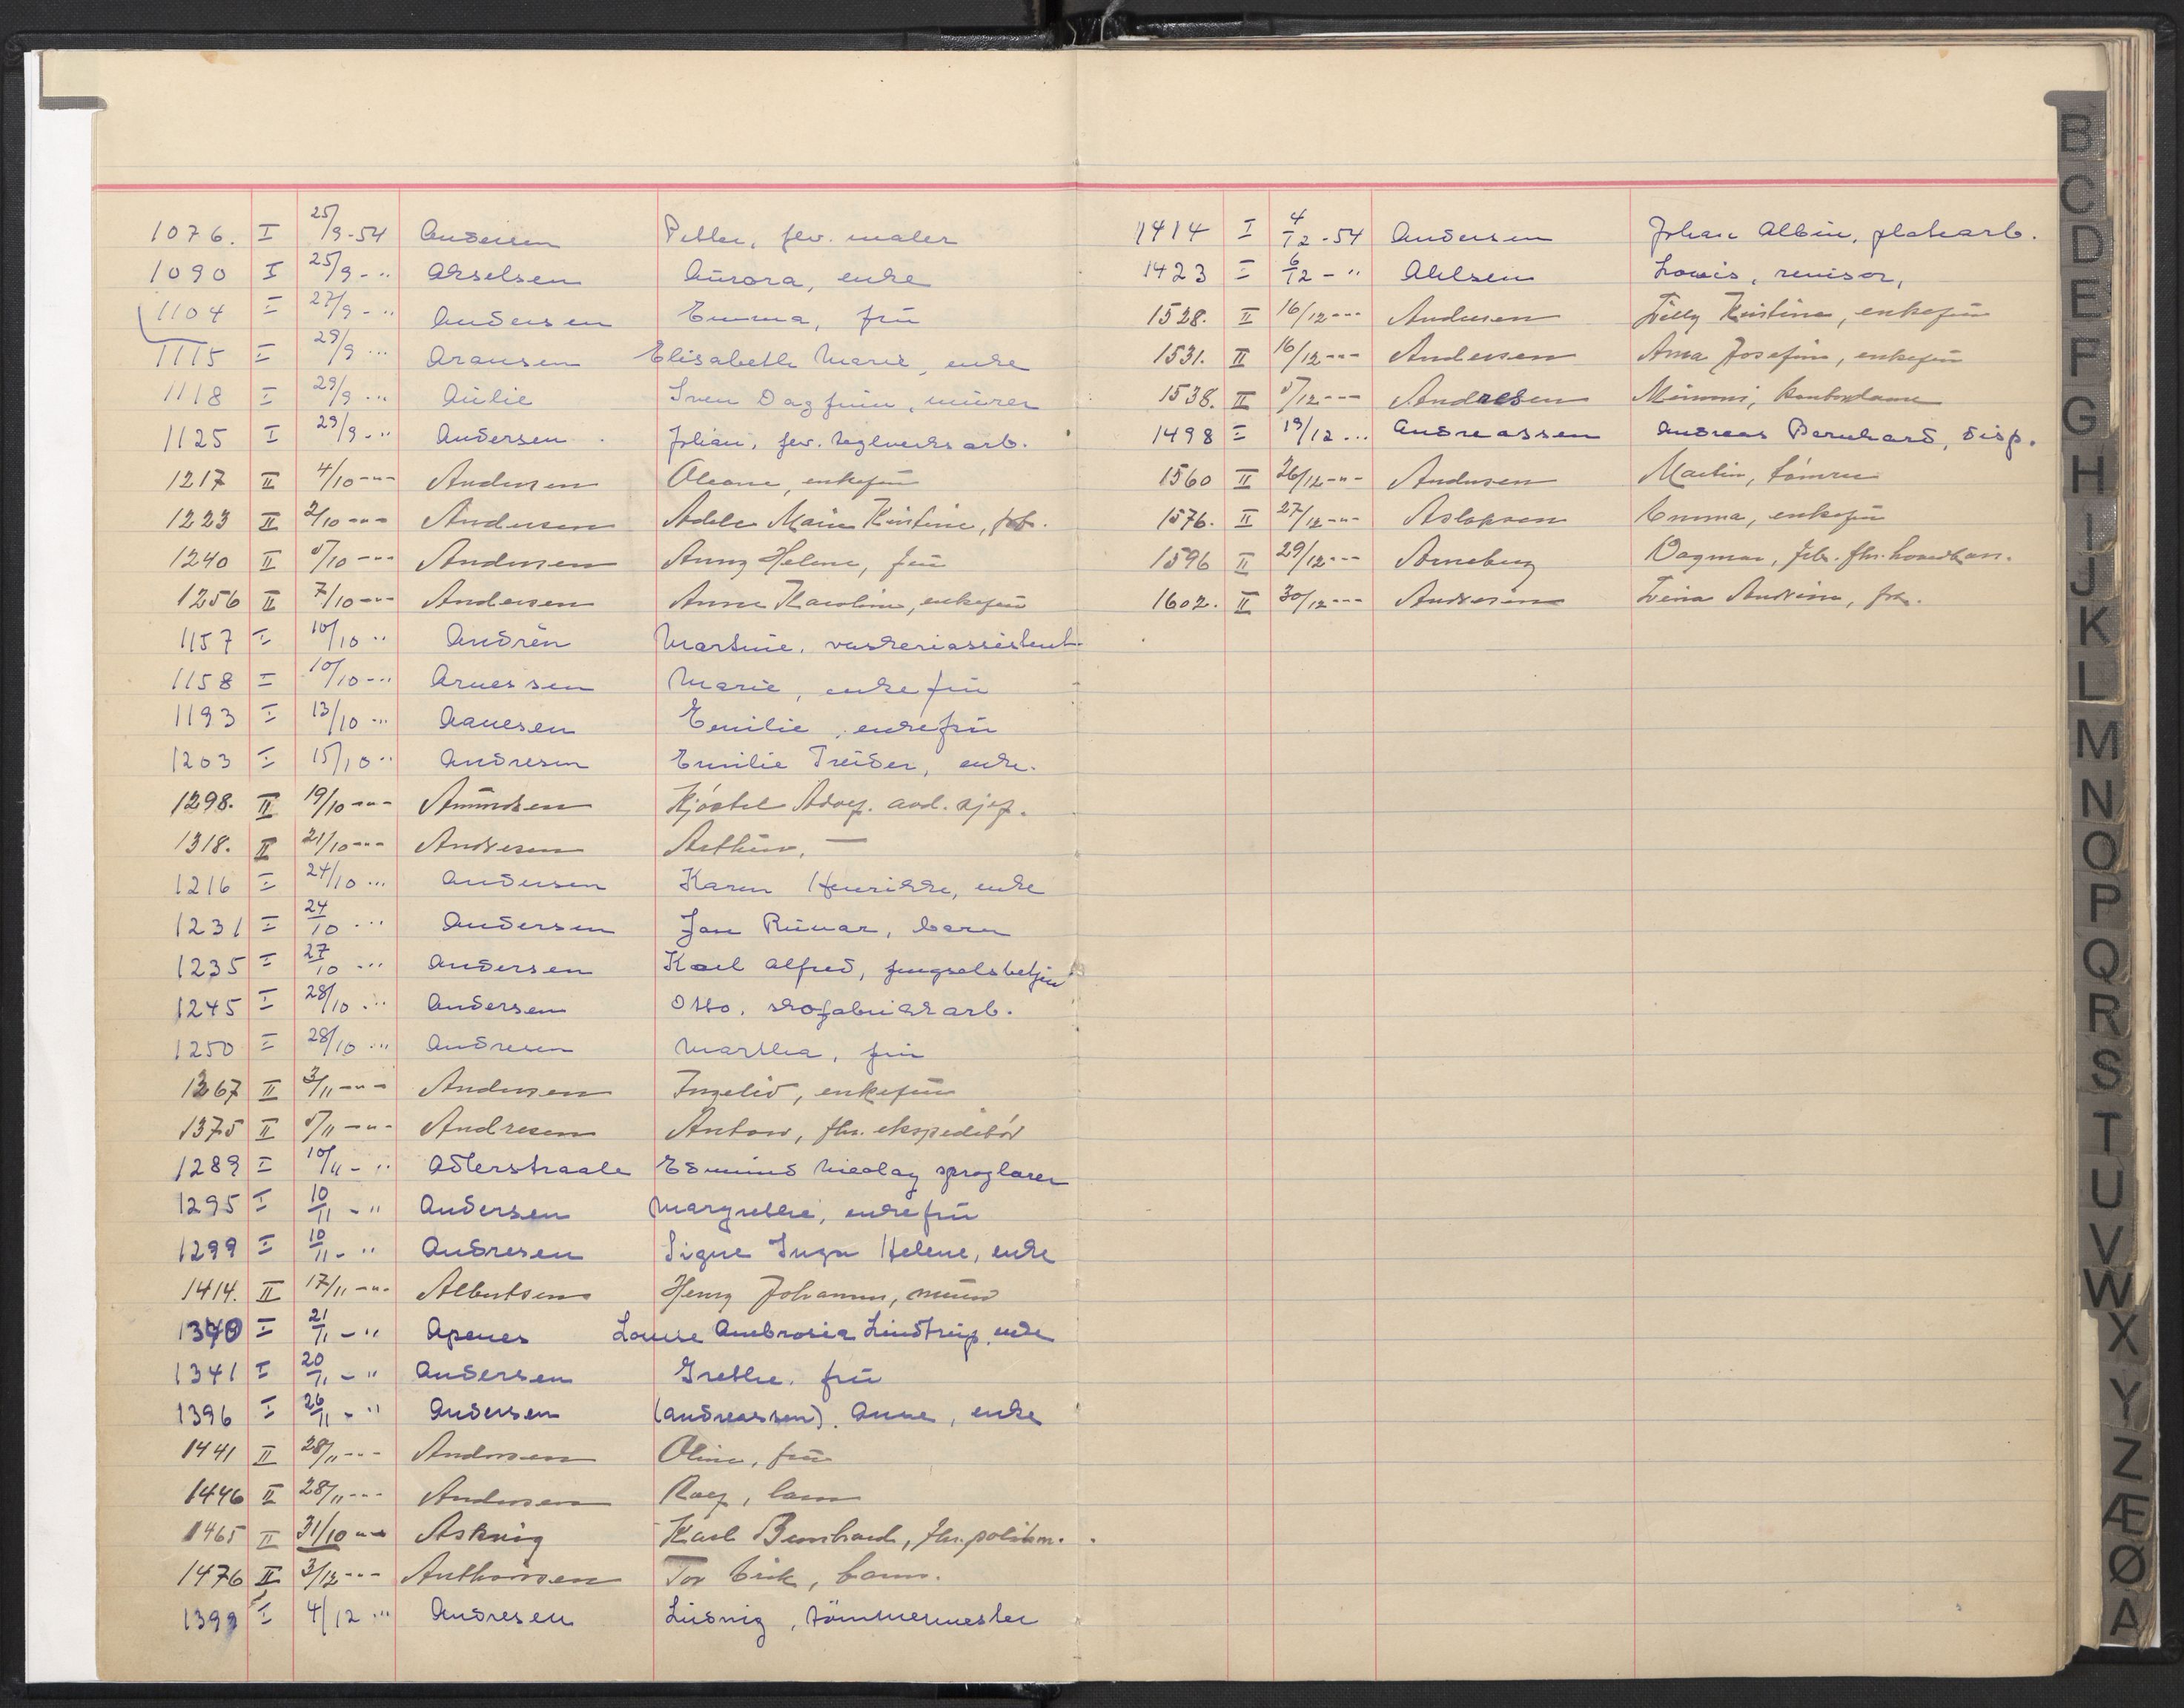 1076. I 25/9-54 Andersen Petter, fev. maler
1090 I 25/9 - " Akselsen Aurora, enke
1104 I 27/9 - " Andersen Emma, frü
1115 I 29/9 - " Aransen Elisabeth Marie, enke
1118 I 29/9 - " Aulie Sven Dagfinn, murer
1125 I 29/9 - " Andersen Johan, fev. teglverksarb.
1217 II 4/10 - " - Andersen Oleane, enkefrü
1223 II 2/10 - " - Andersen Adele Marie Kristine, frk.
1240 II 5/10 - " - Andersen Anny Helene, frü
1256 II 7/10 - " - Andersen Anne Karoline, enkefrü
1157 I 10/10 " Andrén Martine, vaskeriassistent
1158 I 10/10 - " Arnessen Marie, enkefrü
1193 I 13/10 - " Aanesen Emilie, enkefrü
1203 I 15/10 " Andresen Emilie Treider, enke.
1298. II 19/10 - " - Amundsen Kjóstel Adv. avd. sjef.
1318. II 21/10 - " - Andresen Arthur, —
1216 I 24/10 - " Andersen Karen Henrikke, enke
1231 I 24/10 - " Andersen Jan Runar, barn
1235 I 27/10 - " Andersen Karl Alfred, fengselsbetjent
1245 I 28/10 - " Andersen Otto, skofabrikkarb.
1250 I 28/10 - " Andresen Martha, frü
1367 II 3/11 - " - Andersen Ingelid, enkefrü
1375 II 5/11 - " - Andresen Anton, fhv. ekspeditór
1289 I 10/11 - " Adlerstraale Edmund Nicolay
1295 I 10/11 - " Andersen Margrethe, enkefrü
1299 I 10/11 - " Andresen Signe Inga Helene, enke
1414. II 17/11 - " - Albertsen Henry Johannes, murer
1340 I 21/11 - " Apenes Louise Ambrosia Lindtrup, enke
1341 I 20/11 - " Andersen Grethe, frü
1396 I 26/11 - " Andersen (Andreassen), Anne, enke
1441 II 28/11 - " - Andersen Oline, frü
1446 II 28/11 - " - Andersen Roey, barn
1465 II 31/10 - " - Askvig Karl Bernhard, fhv. politim.
1476 II 3/12 - " - Anthonsen Tor Eirik, barn.
1399 I 4/12 - " Andresen Ludvig, tömmermester
1414 I 4/12 - 54 Andersen Johan Albin, platearb.
1423 I 6/12 - " Ahlsen Lowis, revisor,
1528. II 16/12 - " - Andersen Tilly Kristine, enkefrü
1531. II 16/12 - " - Andersen Anna Josefine, enkefrü
1538. II 5/12 - " - Andresen Mimmi, kontordame
1498 I 19/12 - " Andreassen Andreas Bernhard, disp.
1560 II 26/12 - " - Andersen Martin, tómrer
1576. II 27/12 - " - Aslaksen Emma, enkefrü
1596 II 29/12 - " - Arneberg Dagmar, frk. fhv.
1602. II 30/12 - " - Andresen Trina Andrine, frk.
B
C
D
E
F
G
H
I
J
K
L
M
N
O
P
Q
R
S
T
U
V
W
X
Y
Z
Æ
Ø
A